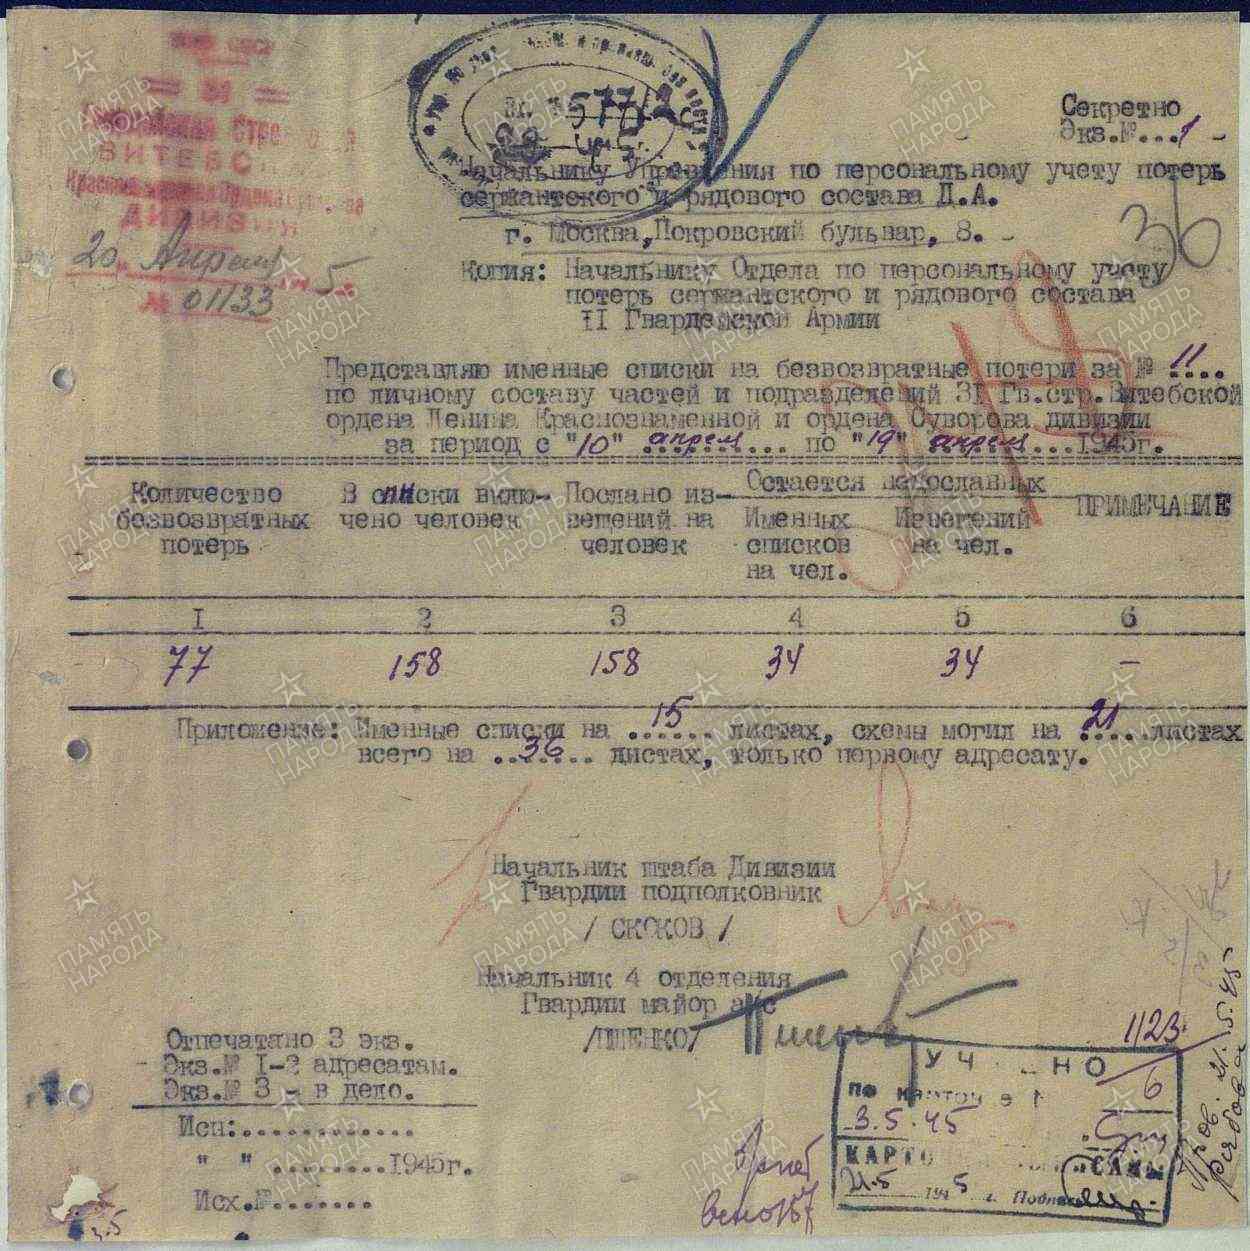 31
Стрелковая
ВИТЕБСКАЯ
ДИВИЗИЯ
20 Апреля 5
№ 01133
Вх. № 57712
Секретно
Экз.№...1
Начальнику Управления по персональному учету потерь
сержантского и рядового состава Д.А.
г. Москва, Покровский бульвар, 8.
36
Копия: Начальнику Отдела по персональному учету
потерь сержантского и рядового состава
II Гвардейской Армии
Представляю именные списки на безвозвратные потери за № 11
по личному составу частей и подразделений 31 Гв.стр.Витебской
ордена Ленина Краснознаменной и ордена Суворова дивизии
за период с "10" апреля по "19" апреля 1945г.
Количество безвозвратных потерь
В списки включено человек
Послано извещений на человек
Остается недосланных
Именных списков на чел.
Извещений на чел.
ПРИМЕЧАНИЕ
I 2 3 4 5 6
77 158 158 34 34 –
Приложение: Именные списки на 15 листах, схемы могил на 21 листах
всего на 36 листах, только первому адресату.
Начальник штаба Дивизии
Гвардии подполковник
/ СКОКОВ /
Начальник 4 отделения
Гвардии майор а/с
/ПШЕНКО/
Отпечатано 3 экз.
Экз.№ I-2 адресатам.
Экз.№ 3 - в дело.
Исп:.............
" " ........1945г.
Исх.№.......
1123
УЧТЕНО
6
3.5.45
21.5 1945 г. Подпись
Пров. 21.5.45
3.5
ПАМЯТЬ НАРОДА